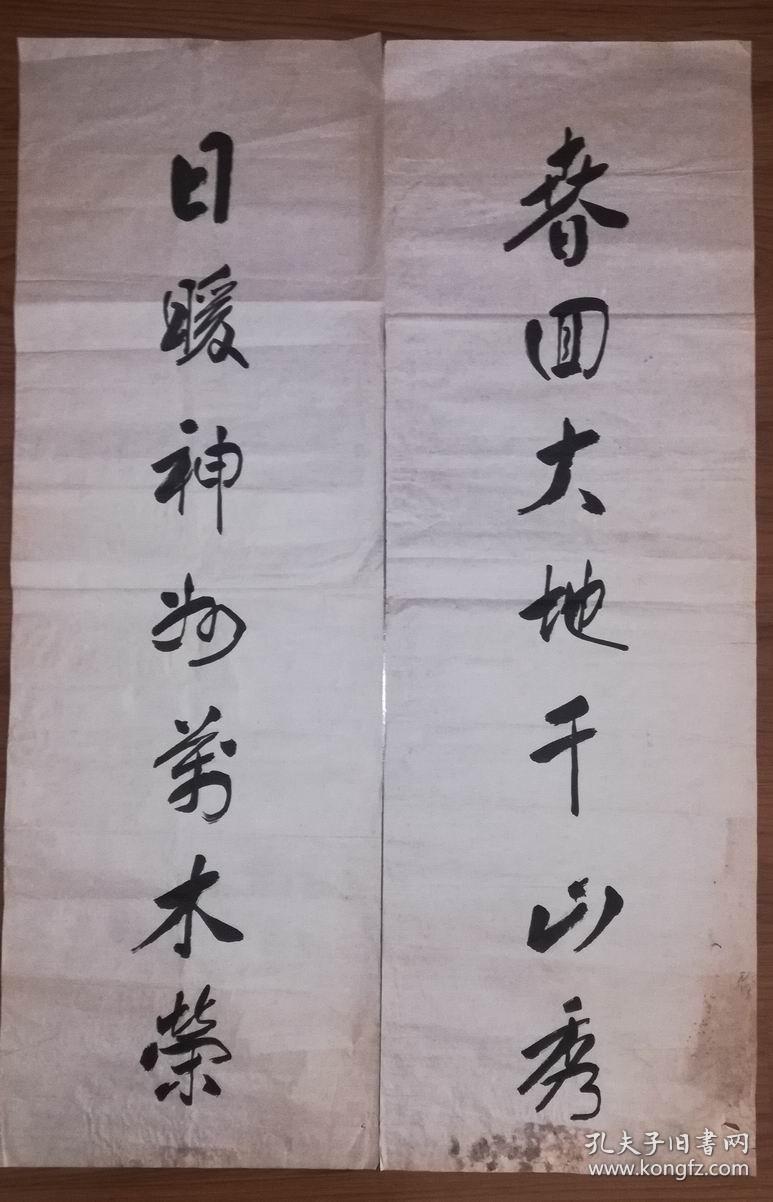 春回大地千山秀
日暖神州萬木榮
孔夫子旧書网
www.kongfz.com